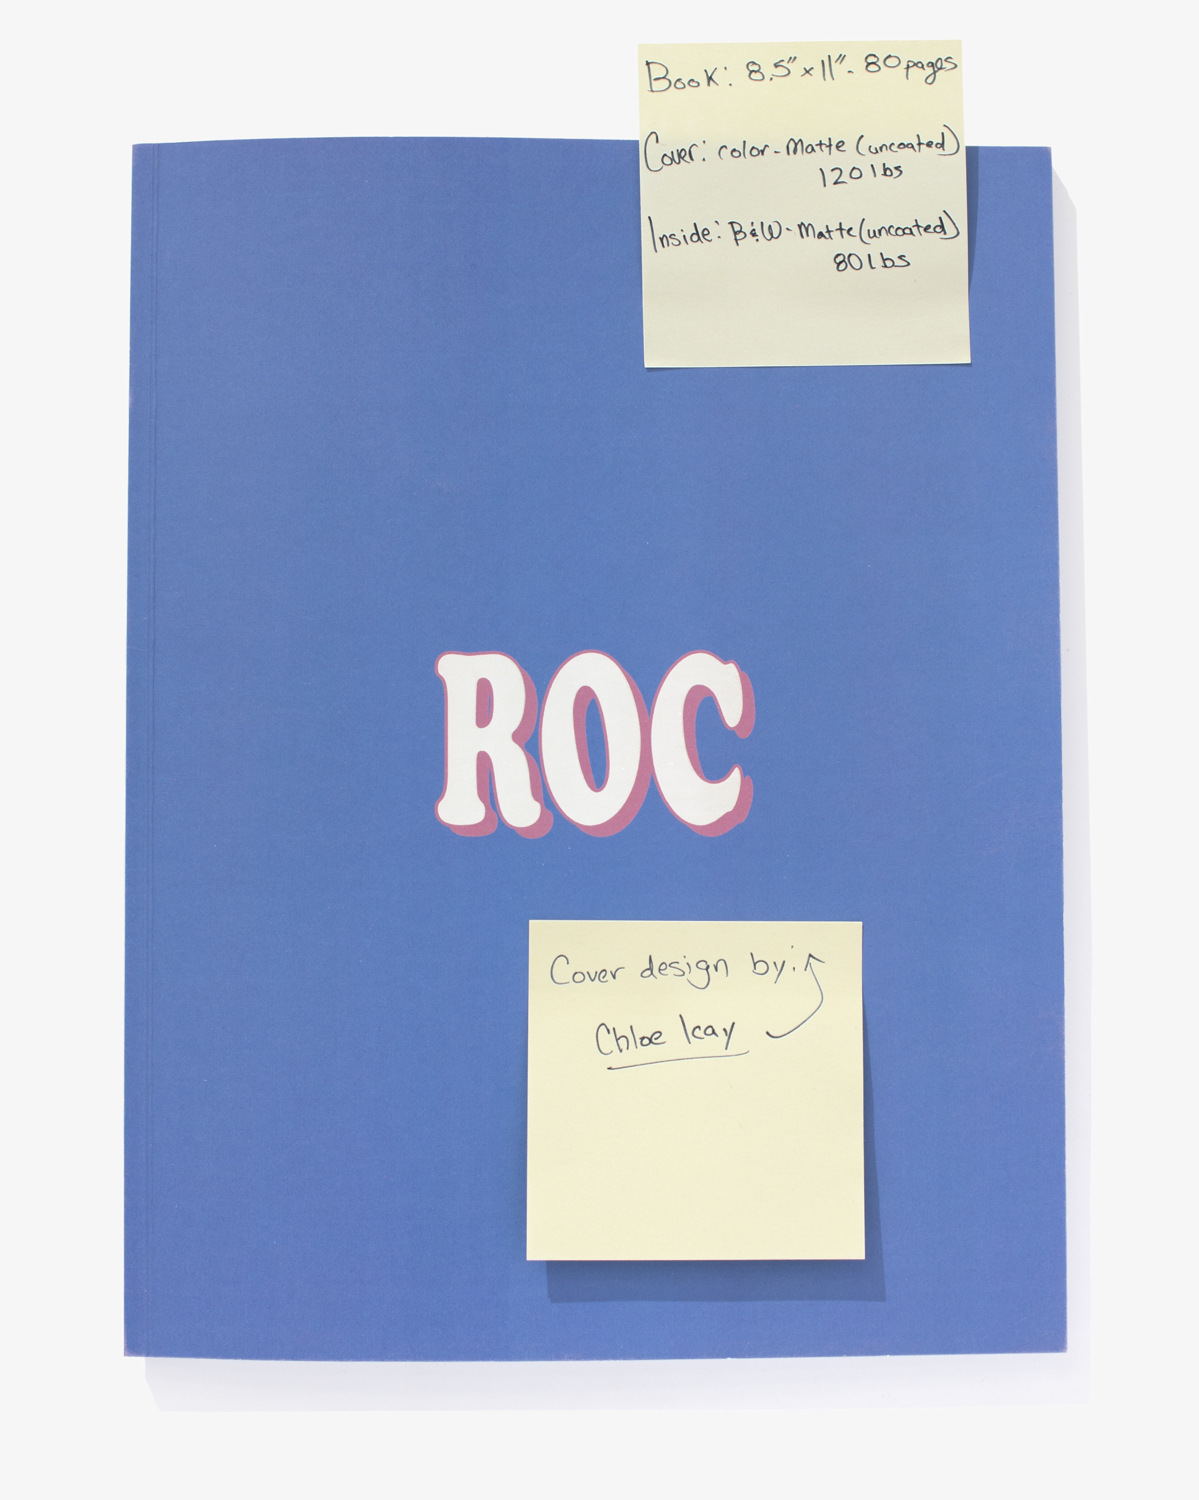 Book: 8.5" x 11". 80 pages
Cover: color - Matte (uncoated)
120 lbs
Inside: B&W - Matte (uncoated)
80 lbs
ROC
Cover design by:
Chloe Kay